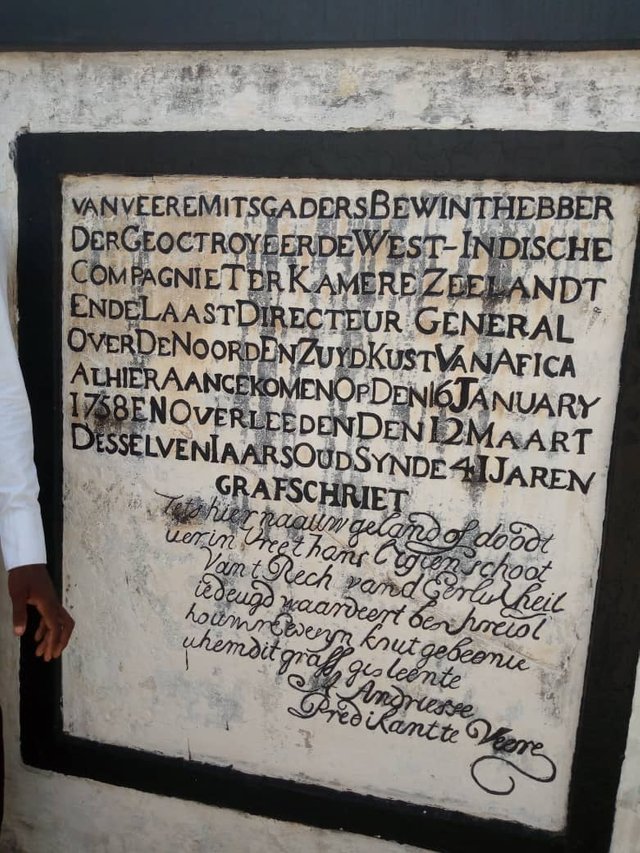 VAN VEERE MITSGADERS BEWINTHEBBER
DER GEOCTROYEERDE WEST-INDISCHE
COMPAGNIE TER KAMERE ZEELANDT
ENDE LAAST DIRECTEUR GENERAL
OVER DE NOORD EN ZUYD KUST VAN AFICA
ALHIER AANGEKOMEN OP DEN 16 JANUARY
1758 EN OVERLEEDEN DEN 12 MAART
DESSELVEN IAARS OUD SYNDE 41 JAREN
GRAFSCHRIET
hier naauw geland of doodt
in Vreet hans schoot
Van t Rech van d Eerlukheil
iedeugd waardeert
knut gebeenie
uhem dit graff gisleente
Andriesse
Predikant te Veere